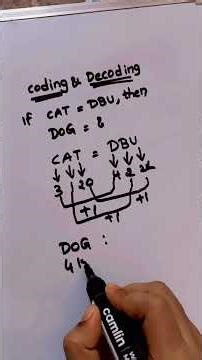 Coding & Decoding
If CAT = DBU, then
DOG = ?
CAT = DBU
3 1 20 4 2 21
+1 +1 +1
DOG :
4 15
camlin